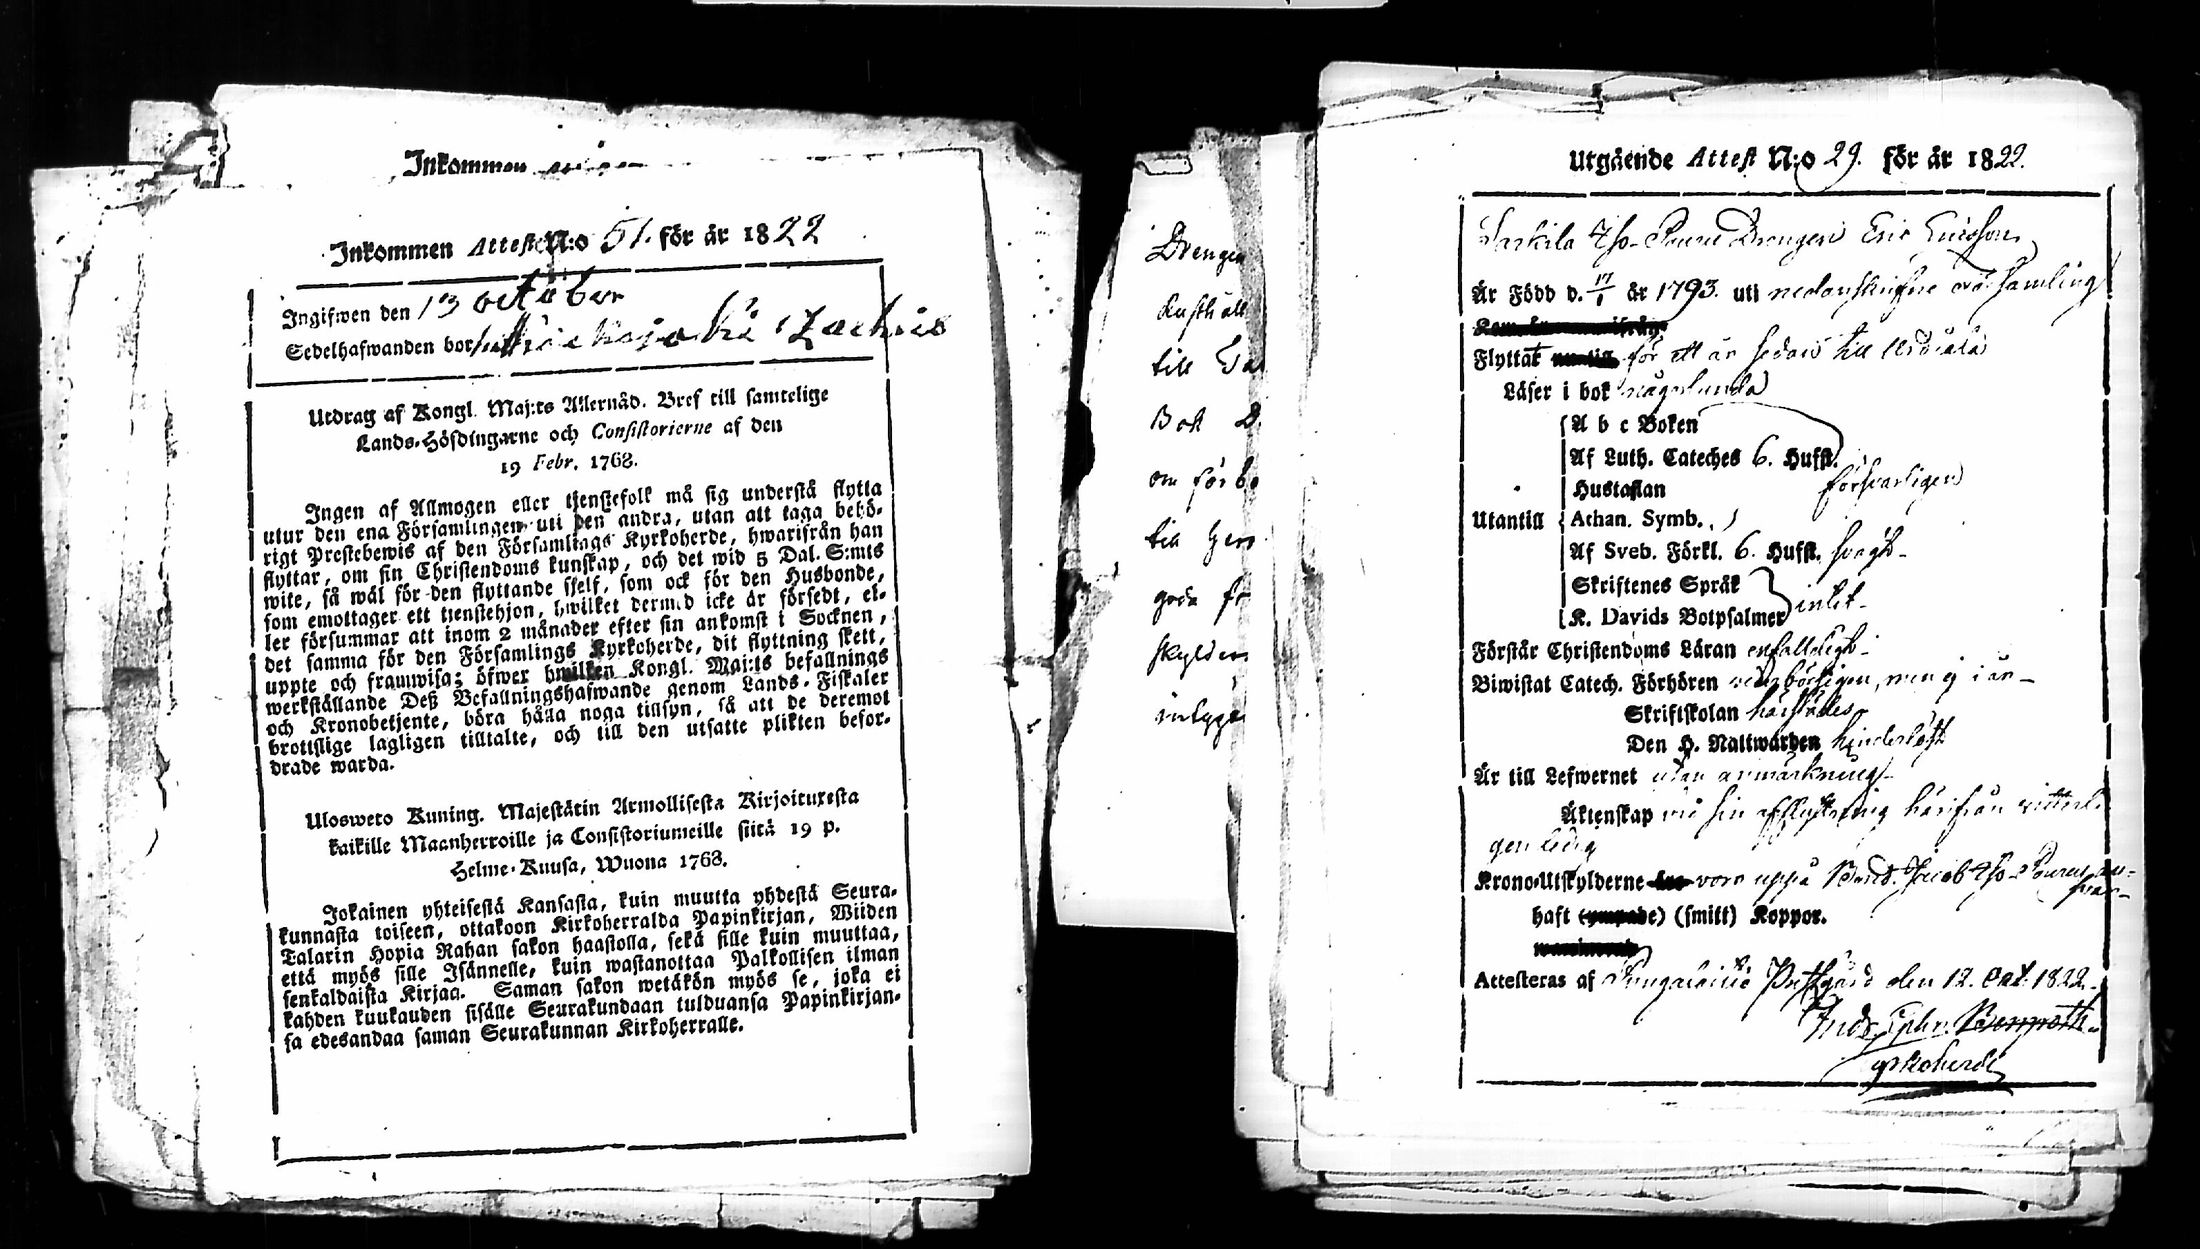 Inkommen
Inkommen Attest N:o 51. för år 1822
Ingifwen den 13 october
Sedelhafwanden bor Zachris
Utdrag af Kongl. Maj:ts Allernåd. Bref till samtelige
Lands-Höfdingarne och Consistorierne af den
19 Febr. 1768.
Ingen af Allmogen eller tjenstefolk må sig understå flytta
utur den ena Församlingen uti den andra, utan att taga behö-
rigt Prestebewis af den Församlings Kyrkoherde, hwarifrån han
flyttar, om sin Christendoms kunskap, och det wid 5 Dal. S:mts
wite, så wäl för den flyttande sjelf, som ock för den Husbonde,
som emottager ett tjenstehjon, hwilket dermed icke är försedt, el-
ler försummar att inom 2 månader efter sin ankomst i Socknen,
det samma för den Församlings Kyrkoherde, dit flyttning skett,
uppte och framwisa; öfwer hwilken Kongl. Maj:ts befallnings
werkställande Deß Befallningshafwande genom Lands-Fiskaler
och Kronobetjente, böra hålla noga tillsyn, så att de deremot
brottslige lagligen tilltalte, och till den utsatte plikten befor-
drade warda.
Ulosweto Kuning. Majestätin Armollisesta Kirjoituxesta
kaikille Maanherroille ja Consistoriumeille siitä 19 p.
Helme-Kuusa, Wuona 1768.
Jokainen yhteisestä Kansasta, kuin muutta yhdestä Seura-
kunnasta toiseen, ottakoon Kirkoherralda Papinkirjan, Wiiden
Talarin Hopia Rahan sakon haastolla, sekä sille kuin muuttaa,
että myös sille Isännelle, kuin wastanottaa Palkollisen ilman
senkaldaista Kirjaa. Saman sakon wetäkön myös se, joka ei
kahden kuukauden sisälle Seurakundaan tulduansa Papinkirjan-
sa edesandaa saman Seurakunnan Kirkoherralle.
Drengen
till
Bok
om förbe
till
goda
skylder
intyga
Utgående Attest N:o 29. för år 1822.
Sarkila Eric Ericsson
Är Född d. 17/1 år 1793. uti nedanskrifne församling
Flyttat för ett år sedan till Urdiala
Läser i bok någorlunda
A b c Boken
Af Luth. Cateches 6. Hufst.
Hustaflan försvarligen
Utantill Athan. Symb.
Af Sveb. Förkl. 6. Hufst. svagt
Skriftenes Språk
K. Davids Botpsalmer intet
Förstår Christendoms Läran enfaldigt
Biwistat Catech. Förhören vederbörligen, men ej i år
Skriftskolan härstädes
Den H. Nattwarden hinderlöst
Är till Lefwernet utan anmärkning
Äktenskap vid sin afflyttning härifrån
gen ledig
Krono-Utskylderne voro uppå Bond. Jacob
haft (smitt) Koppor.
Attesteras af Pungalaitio Prestgård den 12. Oct. 1822.
Ephr. Bergroth
Kyrkoherde